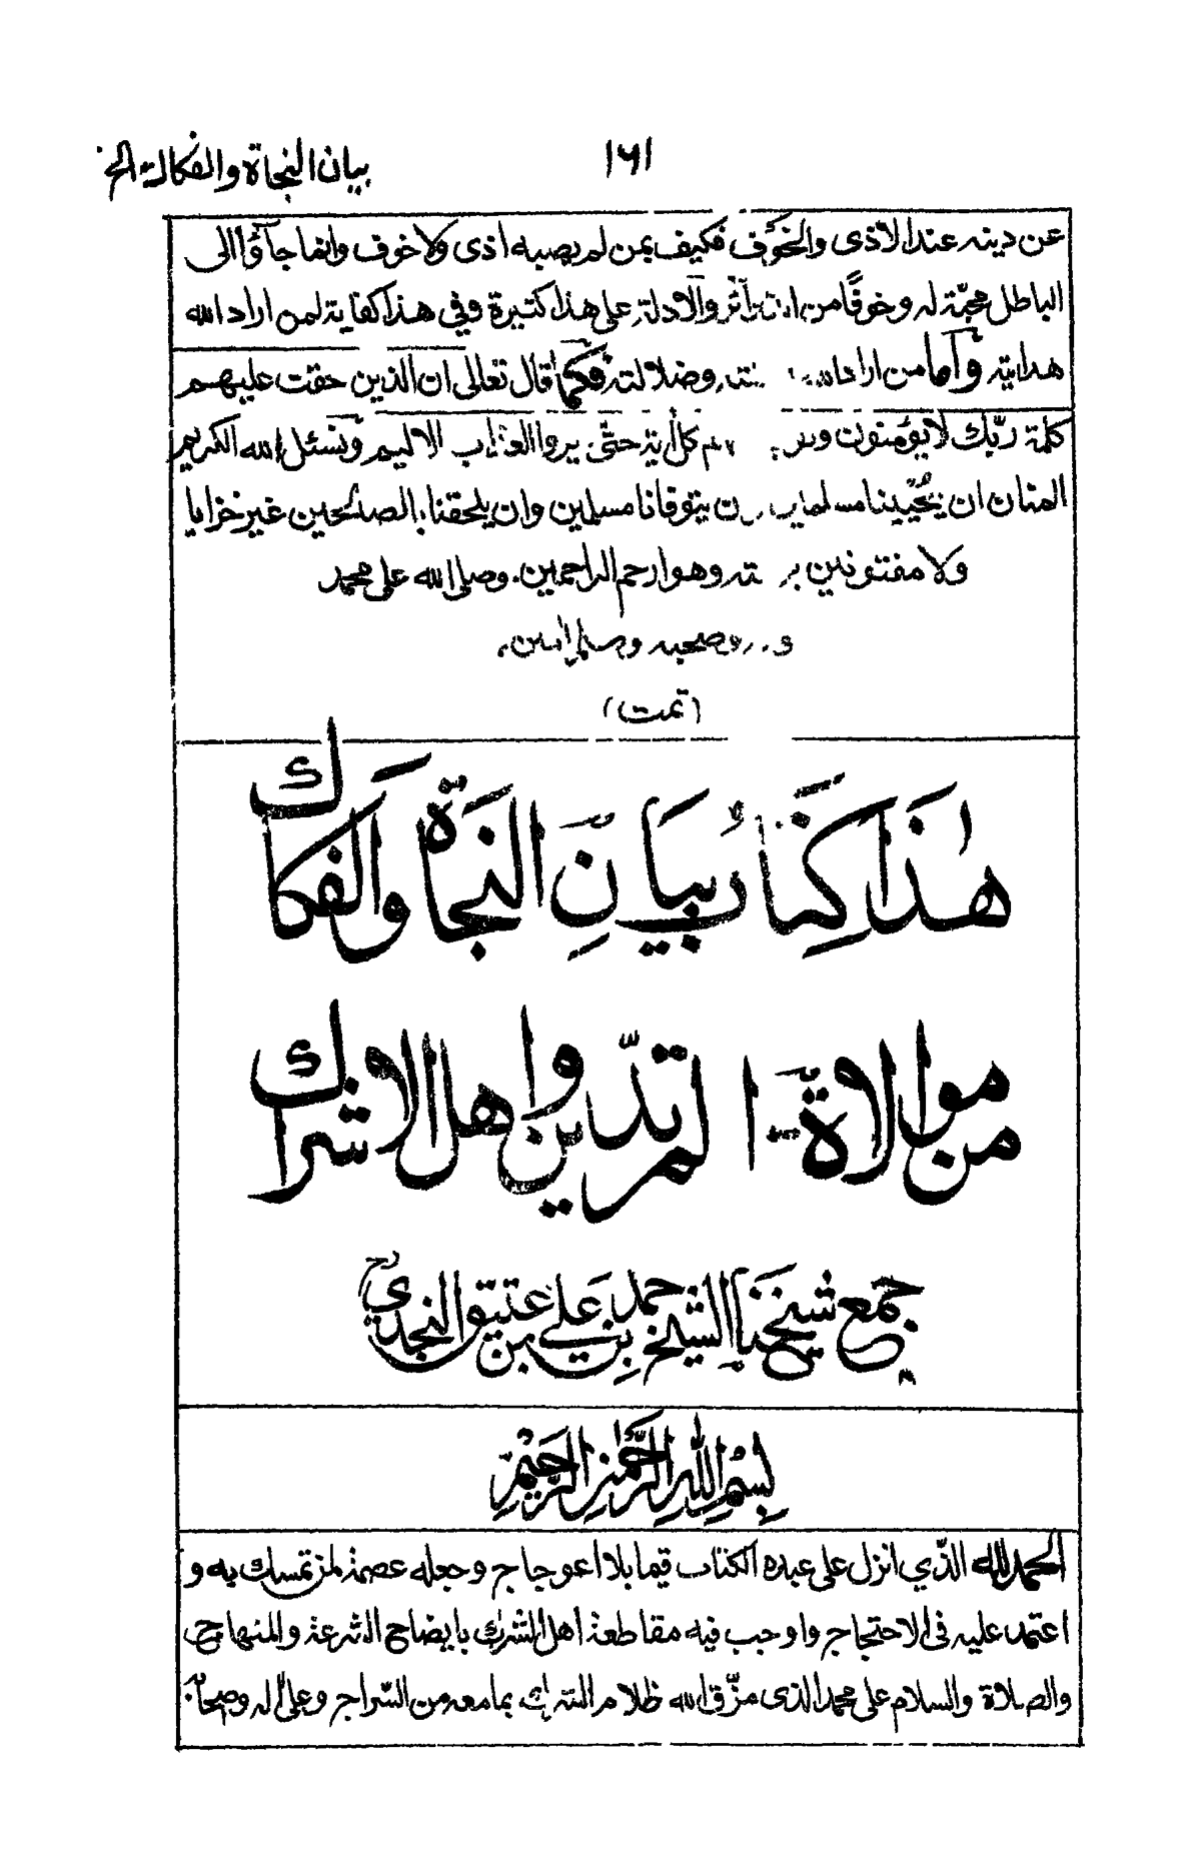 بيان النجاة والفكاك الخ
١٦١
عن دينه عند الاذى والخوف فكيف بمن لم يصبه اذى ولا خوف وانما جاؤا الى
الباطل محبّة له وخوفًا من الدوآئر والادلة على هذا كثيرة وفي هذا كفاية لمن اراد الله
هدايته وأما من اراد الله وضلالته فكما قال تعالى ان الذين حقت عليهم
كلمة ربّك لا يؤمنون ولو كل اٰية حتّى يروا العذاب الاليم ونسئل الله الكريم
المنان ان يحيّينا مسلمين وان يتوفانا مسلمين وان يلحقنا بالصالحين غير خزايا
ولا مفتونين وهو ارحم الراحمين. وصلى الله على محمد
وصحبه وسلم اٰمين.
(تمت)
هٰذا كتاب بيان النجاة والفكاك
من موالاة المرتدّين واهل الاشراك
جمع شيخنا الشيخ حمد بن علي بن عتيق النجدي رح
بسم الله الرحمٰن الرحيم
الحمد لله الذّي انزل على عبده الكتاب قيما بلا اعوجاج وجعله عصمة لمن تمسك به و
اعتمد عليه فى الاحتجاج واوجب فيه مقاطعة اهل الشرك بايضاح الشرعة والمنهاج
والصلاة والسلام على محمد الذى مزّق الله ظلام الشرك بما معه من السّراج وعلى اٰله وصحابه